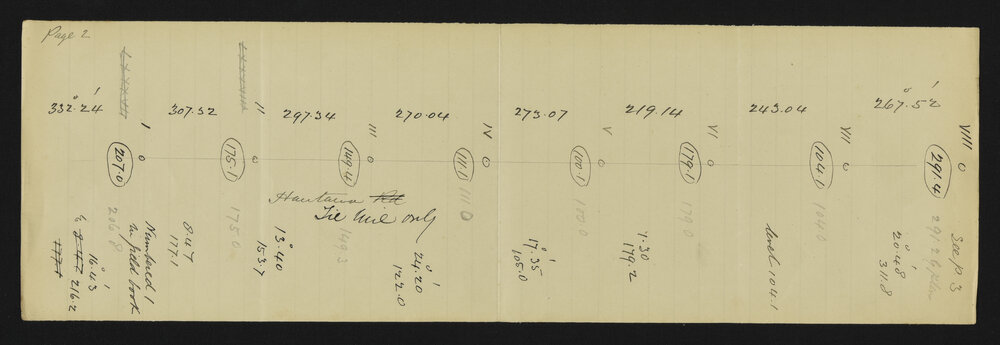 Page 2
332° 24'
307.32
297.34
270.04
273.07
219.14
243.04
267° 52'
I
II
III
IV
V
VI
VII
VIII
207.0
175.1
149.4
111.1
100.1
179.1
104.0
291.4
206 8
175 0
149 3
111 0
100 0
179 0
104 0
291 2
Hautawa Rd
Tie line only
See p 3
Numbered 1
in field book
16° 43'
216.2
8.47
177.1
13° 40
153.7
24° 20'
122.0
17° 35'
105.0
7.30
179.2
level 104.1
20° 48'
311.8